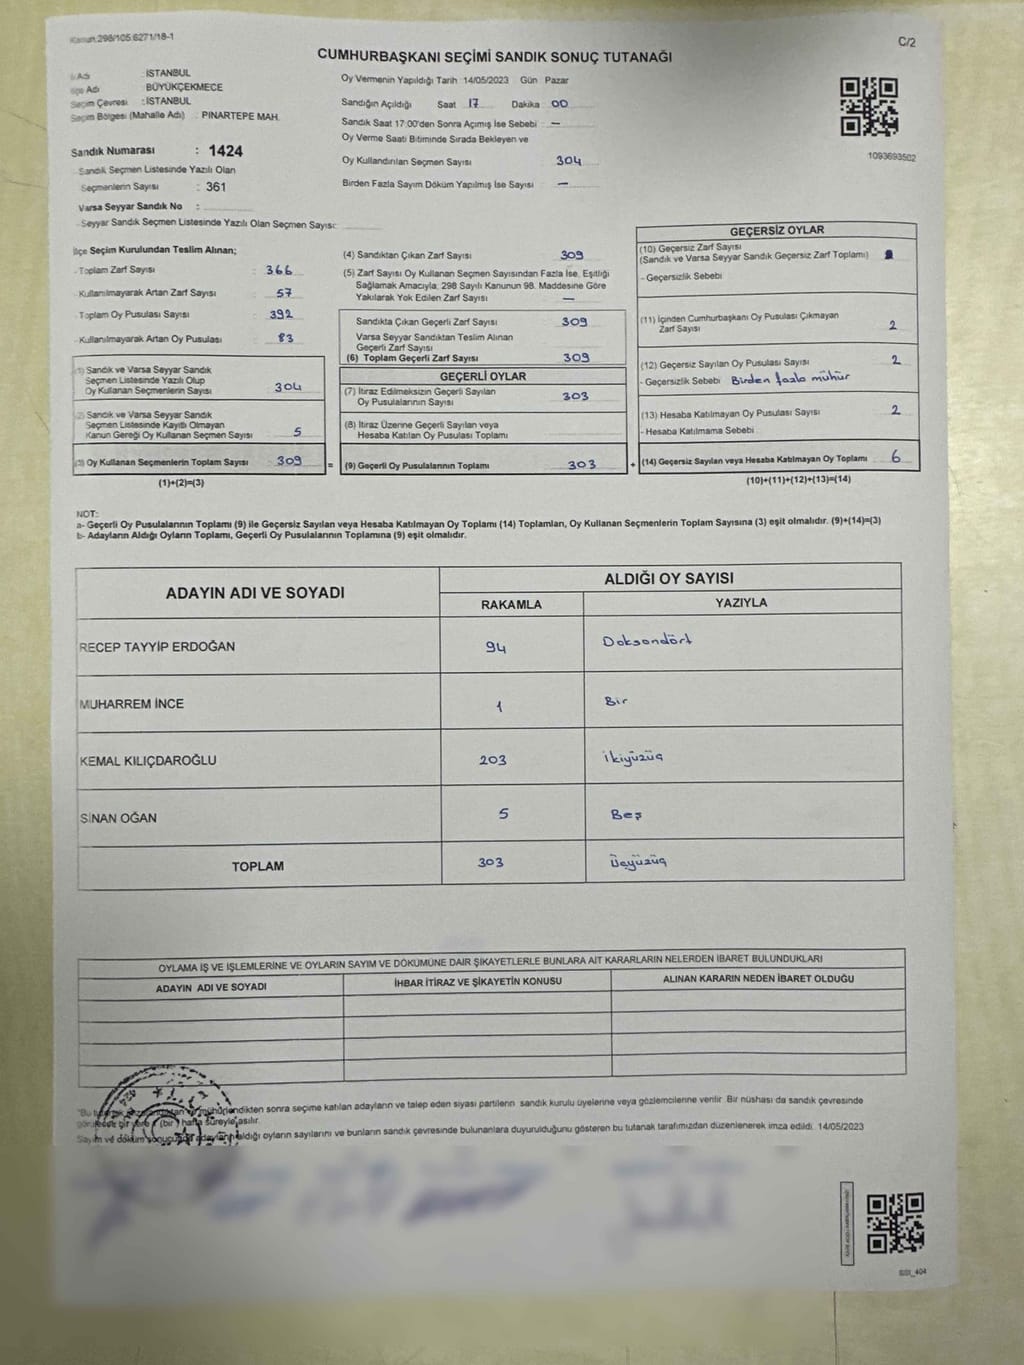 Kanun:298/105:6271/18-1
C/2
CUMHURBAŞKANI SEÇİMİ SANDIK SONUÇ TUTANAĞI
İl Adı : İSTANBUL
İlçe Adı : BÜYÜKÇEKMECE
Seçim Çevresi : İSTANBUL
Seçim Bölgesi (Mahalle Adı) : PINARTEPE MAH.
Sandık Numarası : 1424
Sandık Seçmen Listesinde Yazılı Olan
Seçmenlerin Sayısı : 361
Varsa Seyyar Sandık No :
Seyyar Sandık Seçmen Listesinde Yazılı Olan Seçmen Sayısı:
Oy Vermenin Yapıldığı Tarih 14/05/2023 Gün Pazar
Sandığın Açıldığı Saat 17 Dakika 00
Sandık Saat 17:00'den Sonra Açımış İse Sebebi : —
Oy Verme Saati Bitiminde Sırada Bekleyen ve
Oy Kullandırılan Seçmen Sayısı 304
Birden Fazla Sayım Döküm Yapılmış İse Sayısı —
1093693502
İlçe Seçim Kurulundan Teslim Alınan;
- Toplam Zarf Sayısı : 366
- Kullanılmayarak Artan Zarf Sayısı : 57
- Toplam Oy Pusulası Sayısı : 392
- Kullanılmayarak Artan Oy Pusulası : 83
(1) Sandık ve Varsa Seyyar Sandık
Seçmen Listesinde Yazılı Olup
Oy Kullanan Seçmenlerin Sayısı 304
(2) Sandık ve Varsa Seyyar Sandık
Seçmen Listesinde Kayıtlı Olmayan
Kanun Gereği Oy Kullanan Seçmen Sayısı 5
(3) Oy Kullanan Seçmenlerin Toplam Sayısı 309
(1)+(2)=(3)
=
(4) Sandıktan Çıkan Zarf Sayısı 309
(5) Zarf Sayısı Oy Kullanan Seçmen Sayısından Fazla İse, Eşitliği
Sağlamak Amacıyla, 298 Sayılı Kanunun 98. Maddesine Göre
Yakılarak Yok Edilen Zarf Sayısı —
Sandıkta Çıkan Geçerli Zarf Sayısı 309
Varsa Seyyar Sandıktan Teslim Alınan
Geçerli Zarf Sayısı
(6) Toplam Geçerli Zarf Sayısı 309
GEÇERLİ OYLAR
(7) İtiraz Edilmeksizin Geçerli Sayılan
Oy Pusulalarının Sayısı 303
(8) İtiraz Üzerine Geçerli Sayılan veya
Hesaba Katılan Oy Pusulası Toplamı
(9) Geçerli Oy Pusulalarının Toplamı 303
+
GEÇERSİZ OYLAR
(10) Geçersiz Zarf Sayısı
(Sandık ve Varsa Seyyar Sandık Geçersiz Zarf Toplamı)
- Geçersizlik Sebebi
(11) İçinden Cumhurbaşkanı Oy Pusulası Çıkmayan
Zarf Sayısı 2
(12) Geçersiz Sayılan Oy Pusulası Sayısı 2
- Geçersizlik Sebebi Birden fazla mühür
(13) Hesaba Katılmayan Oy Pusulası Sayısı 2
- Hesaba Katılmama Sebebi
(14) Geçersiz Sayılan veya Hesaba Katılmayan Oy Toplamı 6
(10)+(11)+(12)+(13)=(14)
NOT:
a- Geçerli Oy Pusulalarının Toplamı (9) ile Geçersiz Sayılan veya Hesaba Katılmayan Oy Toplamı (14) Toplamları, Oy Kullanan Seçmenlerin Toplam Sayısına (3) eşit olmalıdır. (9)+(14)=(3)
b- Adayların Aldığı Oyların Toplamı, Geçerli Oy Pusulalarının Toplamına (9) eşit olmalıdır.
ADAYIN ADI VE SOYADI
ALDIĞI OY SAYISI
RAKAMLA YAZIYLA
RECEP TAYYİP ERDOĞAN 94 Doksandört
MUHARREM İNCE 1 Bir
KEMAL KILIÇDAROĞLU 203 İkiyüzüç
SİNAN OĞAN 5 Beş
TOPLAM 303 Üçyüzüç
OYLAMA İŞ VE İŞLEMLERİNE VE OYLARIN SAYIM VE DÖKÜMÜNE DAİR ŞİKAYETLERLE BUNLARA AİT KARARLARIN NELERDEN İBARET BULUNDUKLARI
ADAYIN ADI VE SOYADI
İHBAR İTİRAZ VE ŞİKAYETİN KONUSU
ALINAN KARARIN NEDEN İBARET OLDUĞU
mühürlendikten sonra seçime katılan adayların ve talep eden siyasi partilerin sandık kurulu üyelerine veya gözlemcilerine verilir. Bir nüshası da sandık çevresinde
(bir) hafta süreyle asılır.
Sayım ve döküm sonucunda adayların aldığı oyların sayılarını ve bunların sandık çevresinde bulunanlara duyurulduğunu gösteren bu tutanak tarafımızdan düzenlenerek imza edildi. 14/05/2023